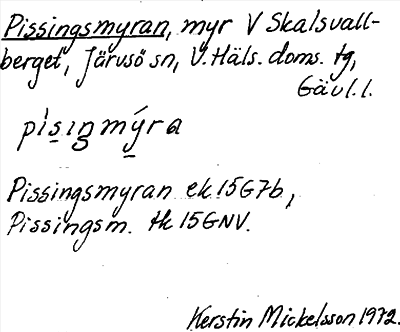 Pissingsmyran, myr V Skalsvall-
berget, Järvsö sn, V. Häls. doms. tg,
Gävl. l.
pìsıŋmýra
Pissingsmyran ek 15G7b,
Pissingsm. tk 15GNV.
Kerstin Mickelsson 1972.